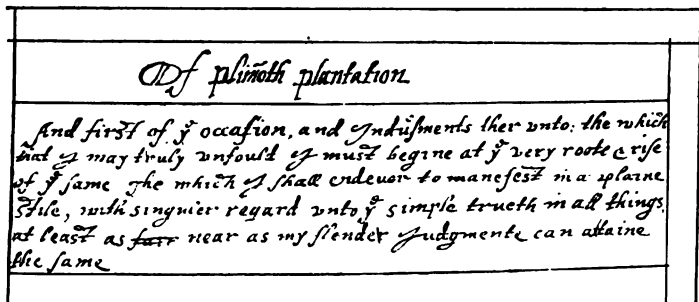 Of plim̃oth plantation
And first of yᵉ occasion, and Indusments ther vnto; the which
that I may truly vnfould, I must begine at yᵉ very roote & rise
of yᵉ same. The which I shall endevor to manefest in a plaine
stile, with singuler regard vnto yᵉ simple trueth in all things,
at least as farr near as my slender Judgmente can attaine
the same